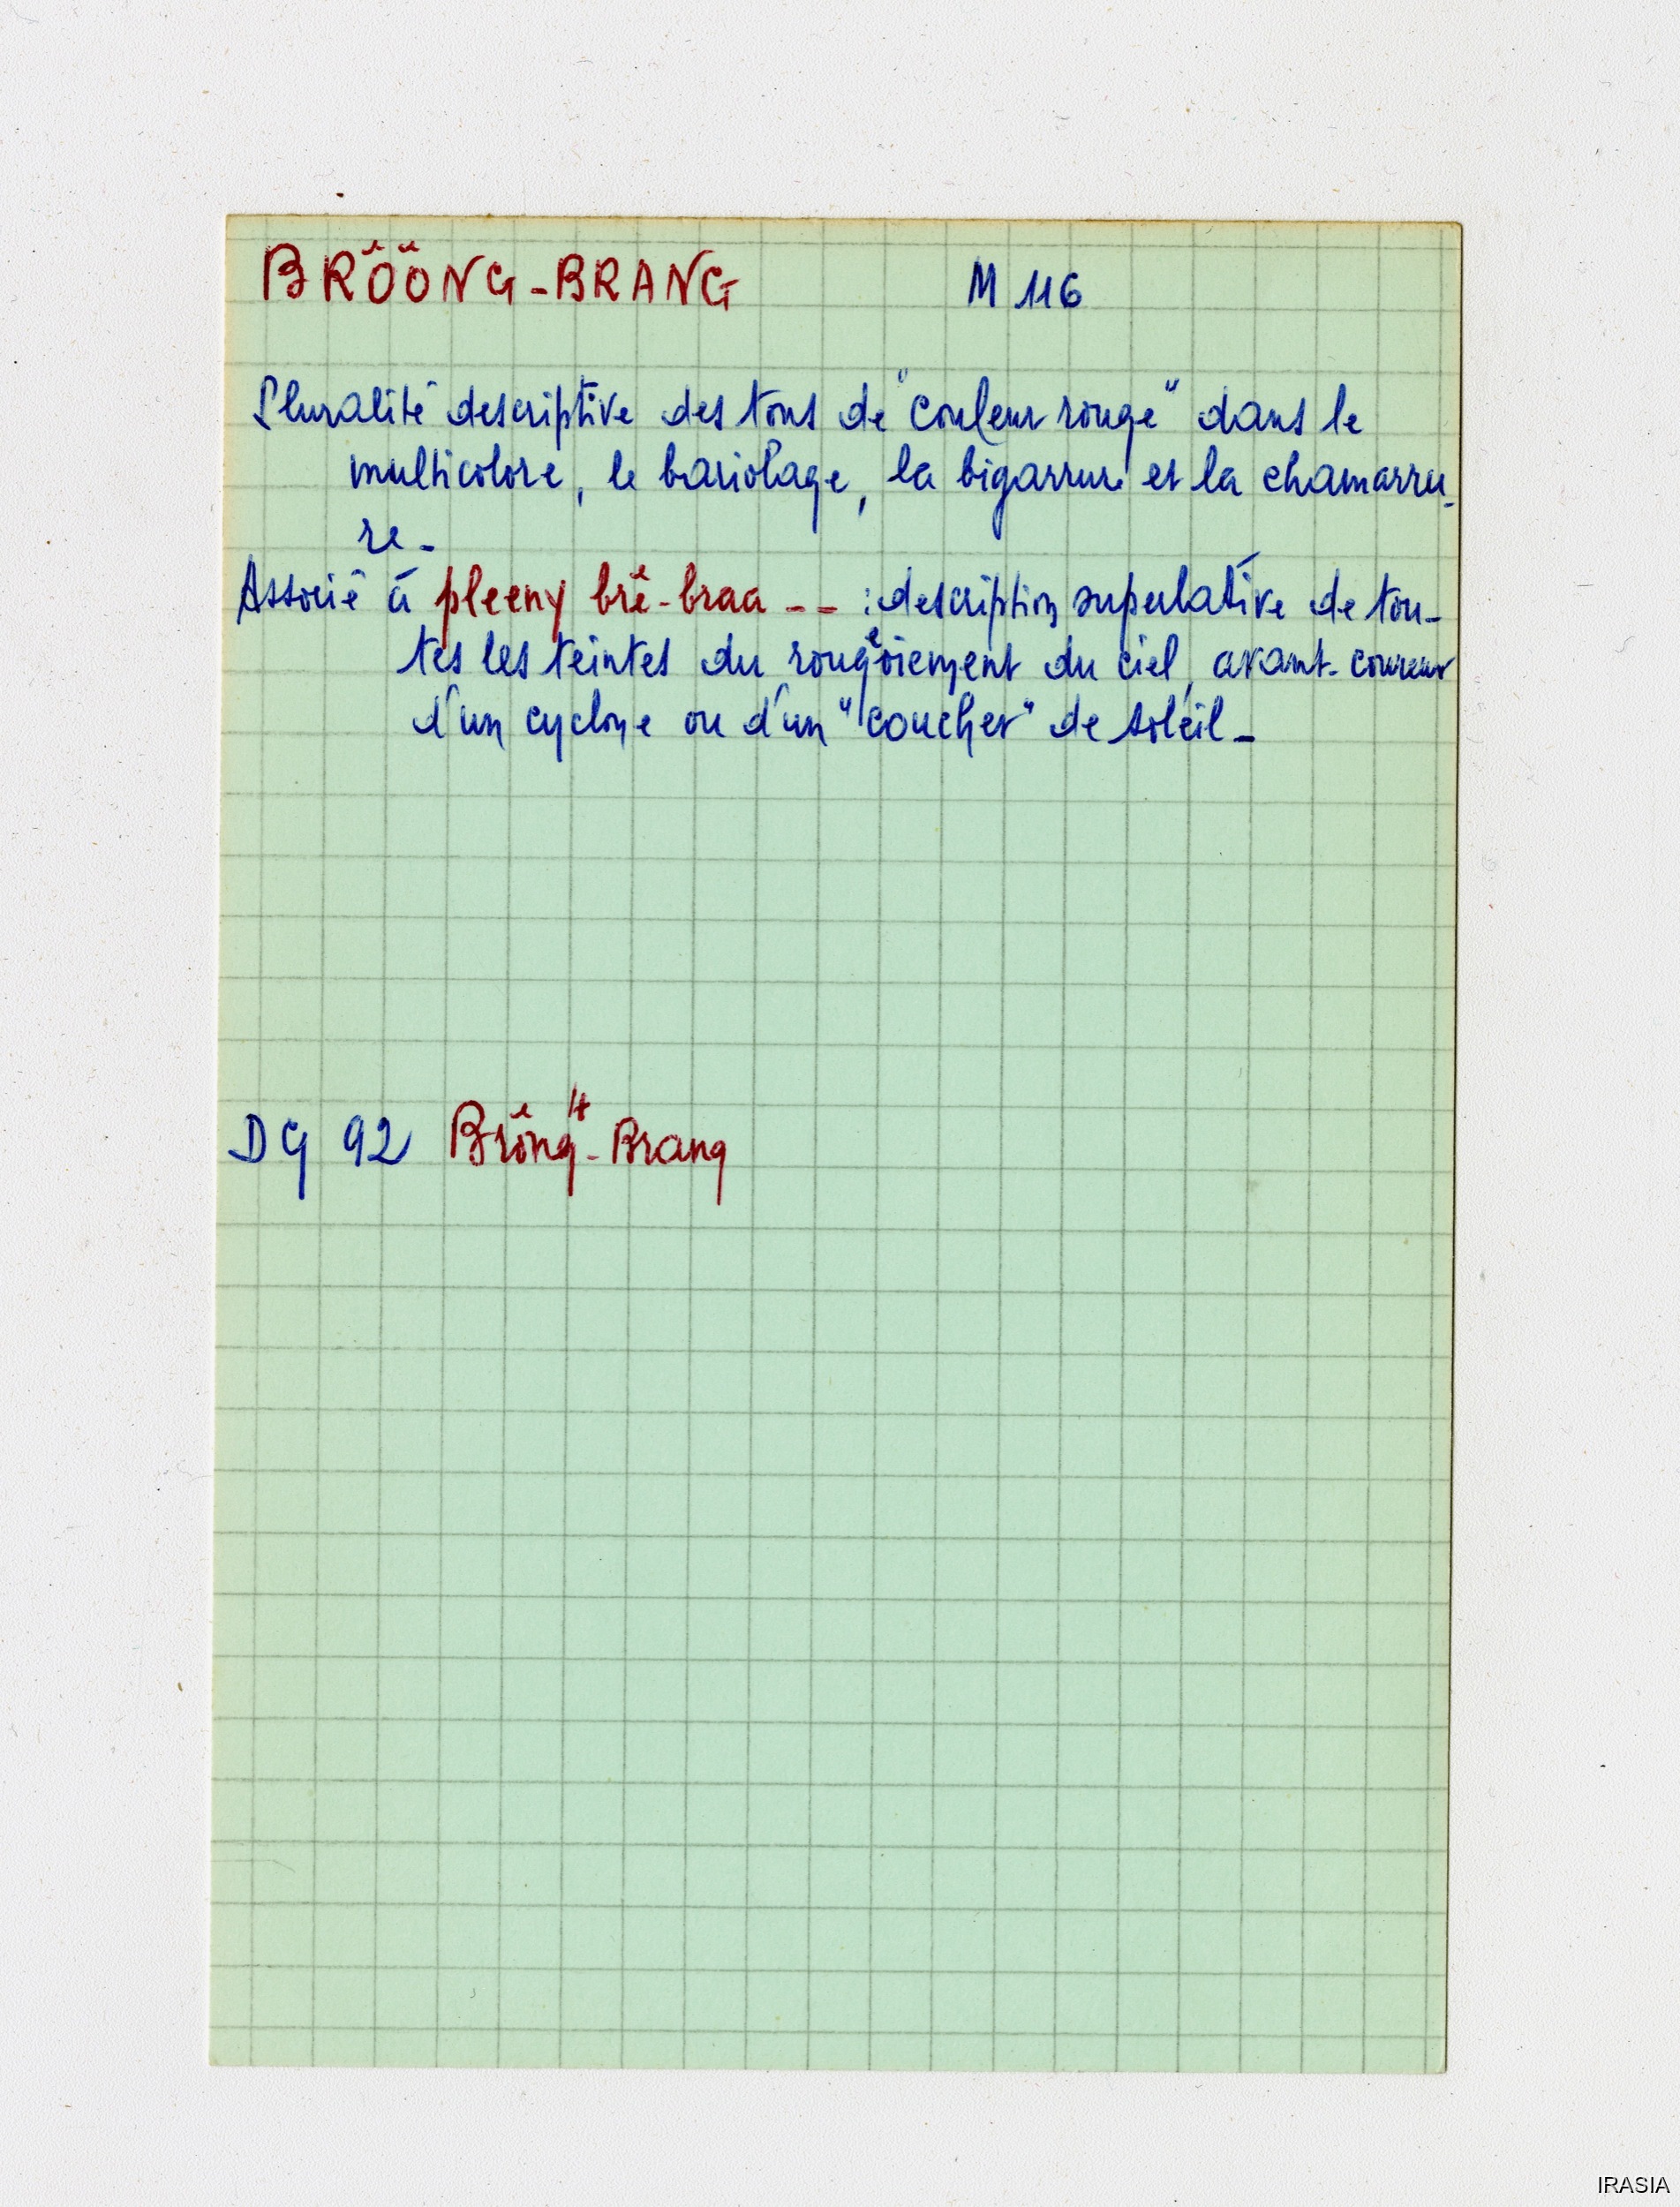 BRÔÔNG-BRANG M 116
Pluralité descriptive des tons de "couleur rouge" dans le
multicolore, le bariolage, la bigarrure et la chamarru-
re-
Associé à pleeny brê-braa -- : description superlative de tou-
tes les teintes du rougeoiement du ciel, avant-coureur
d'un cyclone ou d'un "coucher" de soleil-
DG 92 Brông-Brang
IRASIA